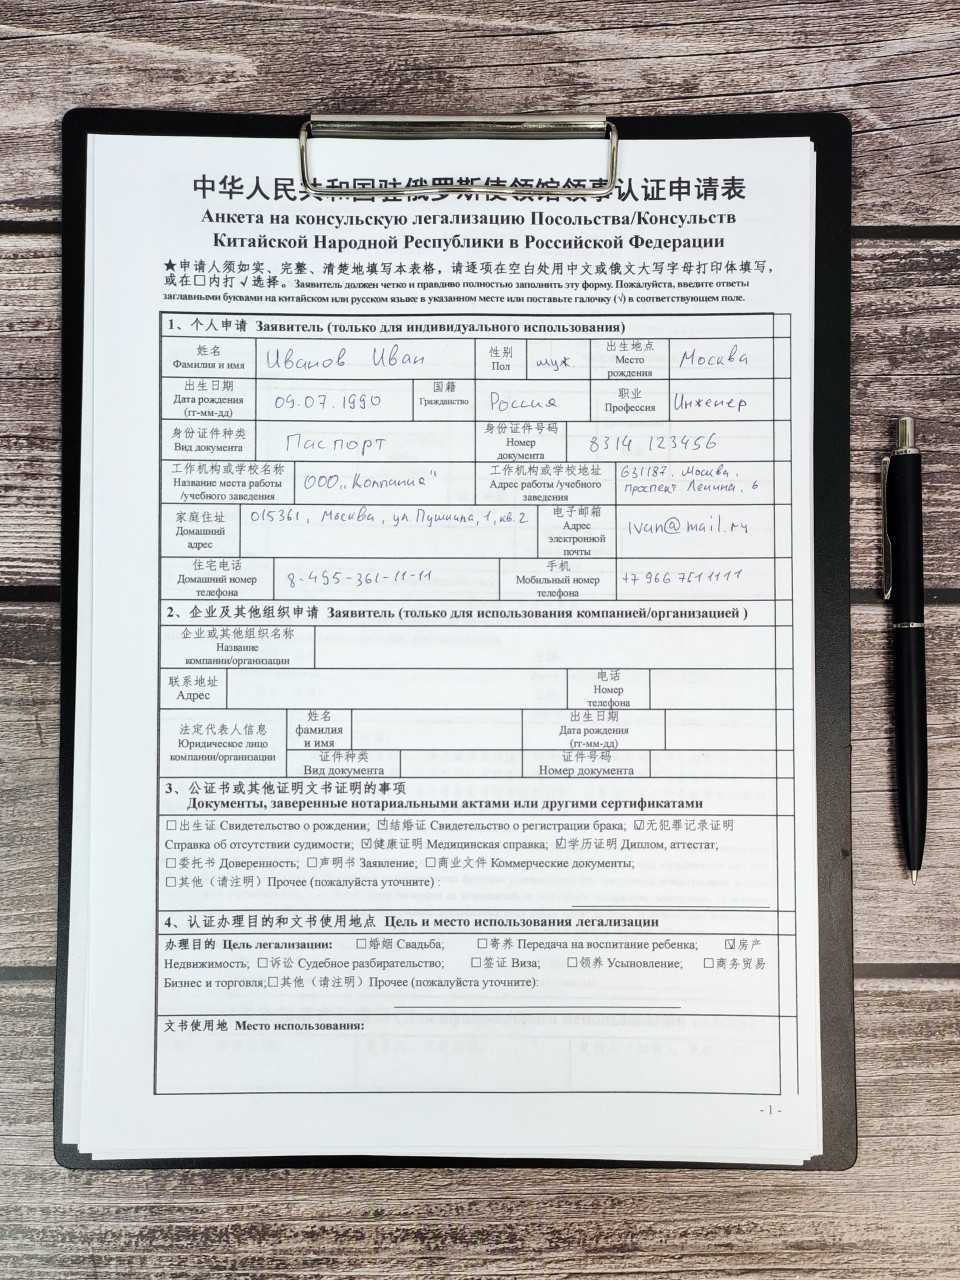 中华人民共和国驻俄罗斯使领馆领事认证申请表
Анкета на консульскую легализацию Посольства/Консульств
Китайской Народной Республики в Российской Федерации
★申请人须如实、完整、清楚地填写本表格，请逐项在空白处用中文或俄文大写字母打印体填写，
或在☐内打√选择。Заявитель должен четко и правдиво полностью заполнить эту форму. Пожалуйста, введите ответы
заглавными буквами на китайском или русском языке в указанном месте или поставьте галочку (√) в соответствующем поле.
1、个人申请 Заявитель (только для индивидуального использования)
姓名
Фамилия и имя
Иванов Иван
性别
Пол
муж.
出生地点
Место
рождения
Москва
出生日期
Дата рождения
(гг-мм-дд)
09.07.1990
国籍
Гражданство
Россия
职业
Профессия
Инженер
身份证件种类
Вид документа
Паспорт
身份证件号码
Номер
документа
8314 123456
工作机构或学校名称
Название места работы
/учебного заведения
ООО „Компания"
工作机构或学校地址
Адрес работы /учебного
заведения
631187. Москва,
проспект Ленина, 6
家庭住址
Домашний
адрес
015361, Москва, ул.Пушкина, 1, кв.2
电子邮箱
Адрес
электронной
почты
ivan@mail.ru
住宅电话
Домашний номер
телефона
8-495-361-11-11
手机
Мобильный номер
телефона
+7 966 7511111
2、企业及其他组织申请 Заявитель (только для использования компанией/организацией )
企业或其他组织名称
Название
компании/организации
联系地址
Адрес
电话
Номер
телефона
法定代表人信息
Юридическое лицо
компании/организации
姓名
фамилия
и имя
出生日期
Дата рождения
(гг-мм-дд)
证件种类
Вид документа
证件号码
Номер документа
3、公证书或其他证明文书证明的事项
Документы, заверенные нотариальными актами или другими сертификатами
☐出生证 Свидетельство о рождении; ☑结婚证 Свидетельство о регистрации брака; ☑无犯罪记录证明
Справка об отсутствии судимости; ☑健康证明 Медицинская справка; ☑学历证明 Диплом, аттестат;
☐委托书 Доверенность; ☐声明书 Заявление; ☐商业文件 Коммерческие документы;
☐其他（请注明）Прочее (пожалуйста уточните) :
4、认证办理目的和文书使用地点 Цель и место использования легализации
办理目的 Цель легализации: ☐婚姻 Свадьба; ☐寄养 Передача на воспитание ребенка; ☑房产
Недвижимость; ☐诉讼 Судебное разбирательство; ☐签证 Виза; ☐领养 Усыновление; ☐商务贸易
Бизнес и торговля;☐其他（请注明）Прочее (пожалуйста уточните):
文书使用地 Место использования:
- 1 -